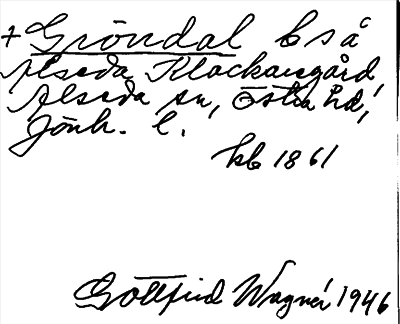 + Gröndal bså
Alseda Klockaregård,
Alseda sn, Östra hd,
Jönk. l.
kb 1861
Gottfrid Wagnér 1946